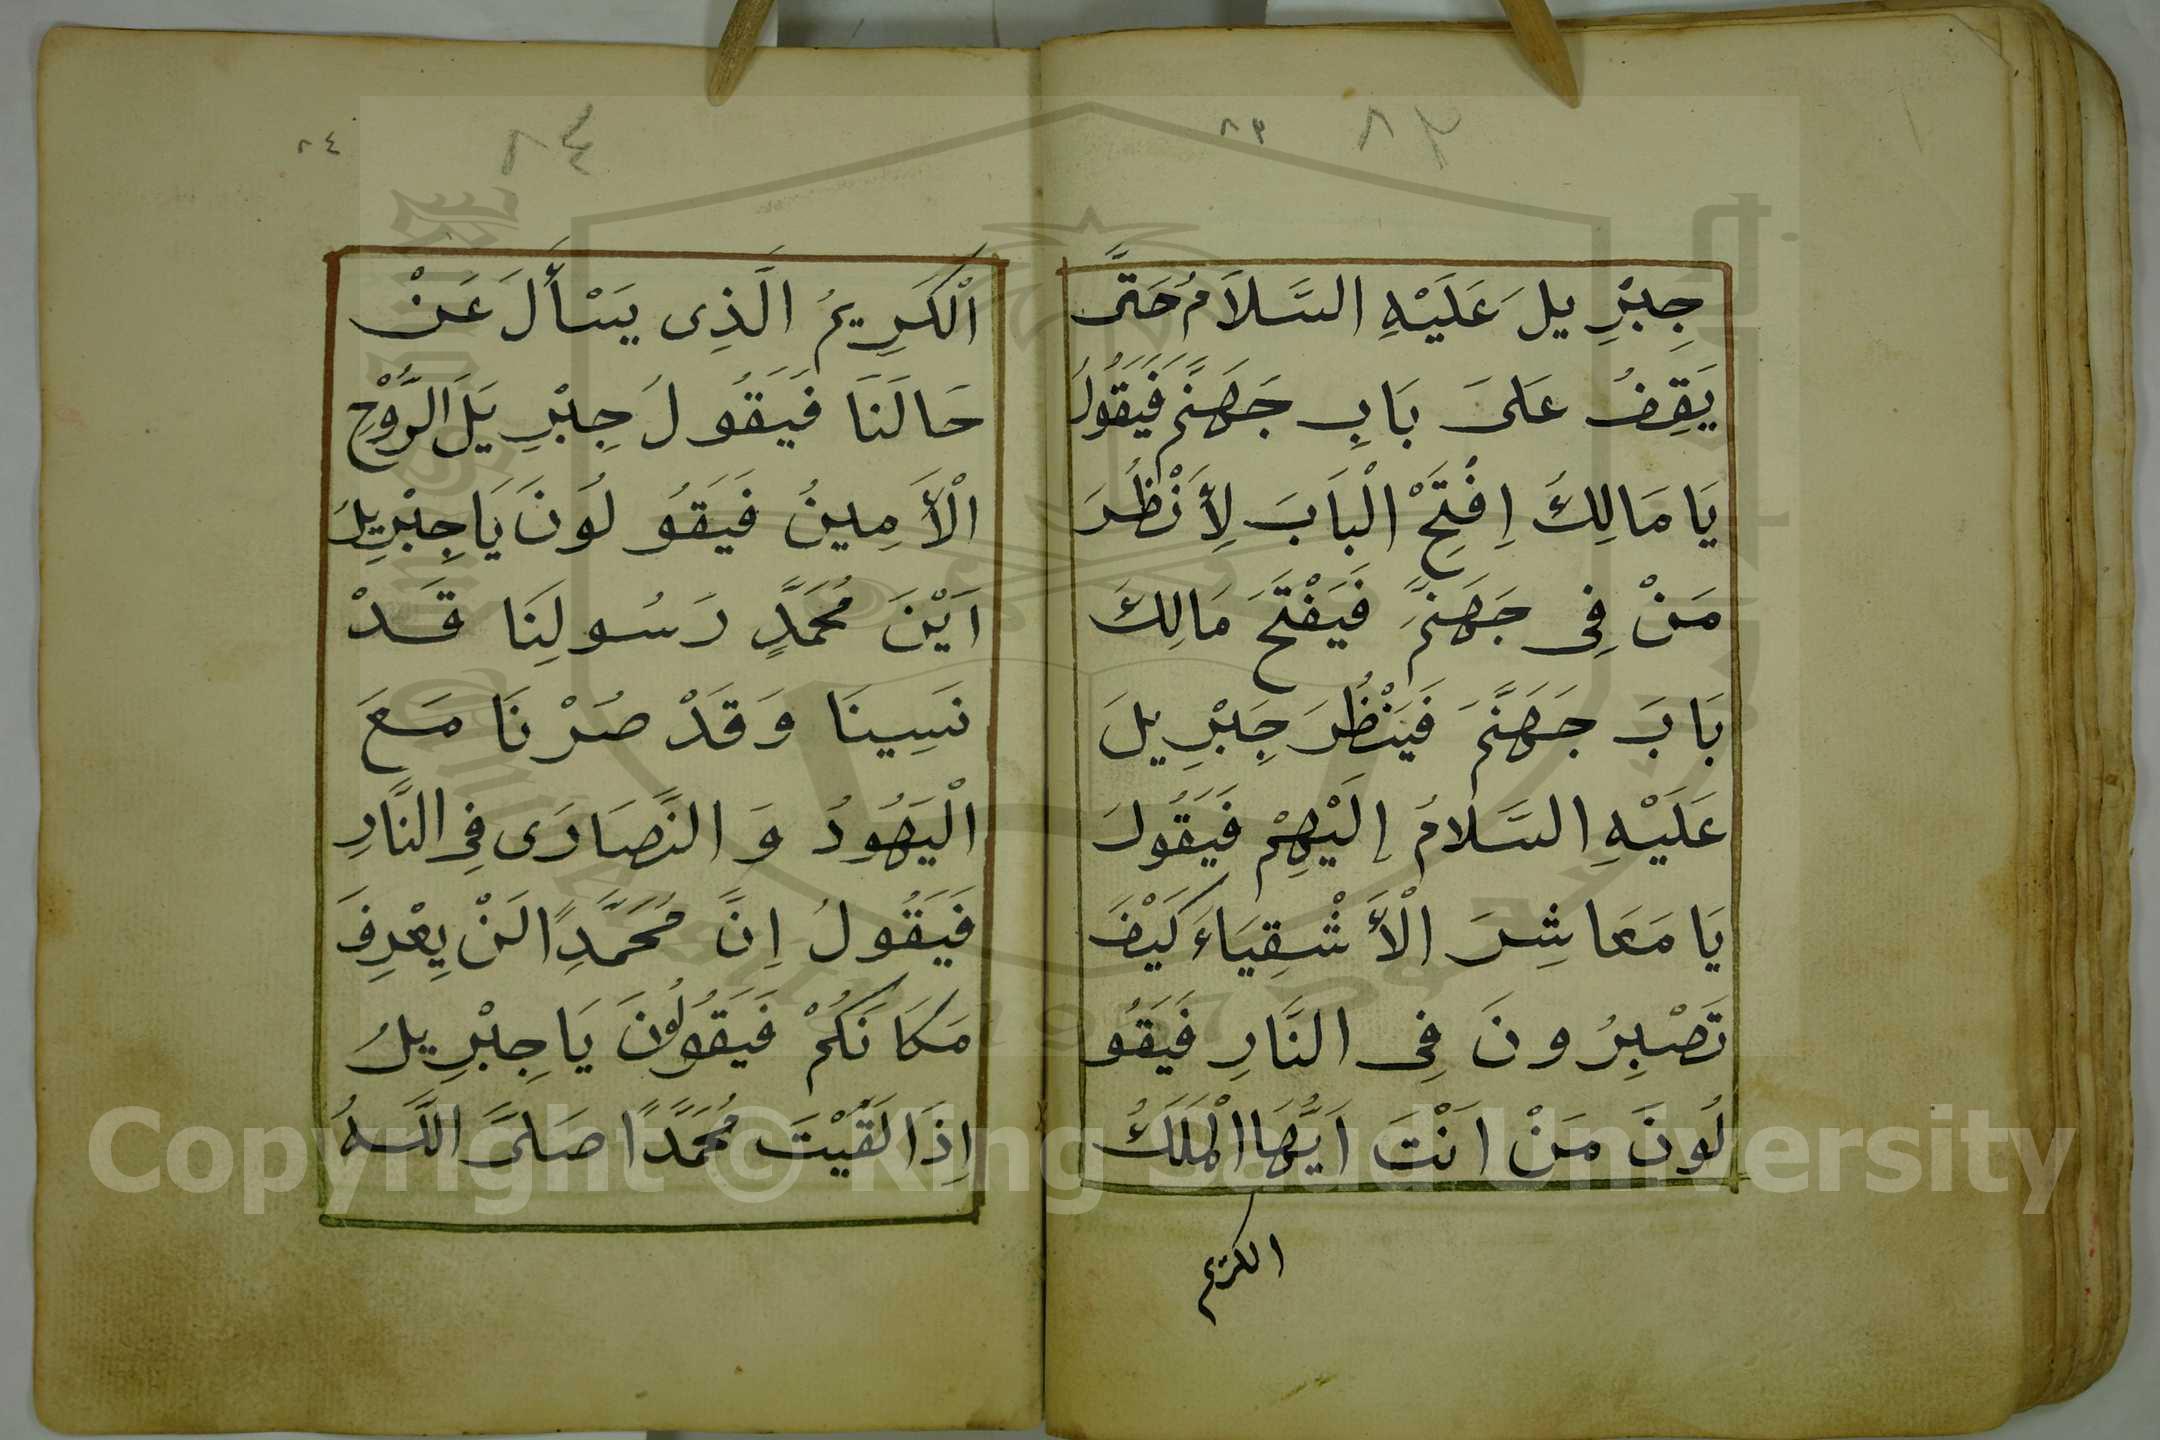 ٨٣ ٨٣
جِبْرِيلَ عَلَيْهِ السَّلَامُ حَتَّى
يَقِفُ عَلَى بَابِ جَهَنَّمَ فَيَقُولُ
يَا مَالِكُ اِفْتَحِ الْبَابَ لِأَنْظُرَ
مَنْ فِى جَهَنَّمَ فَيَفْتَحَ مَالِكُ
بَابَ جَهَنَّمَ فَيَنْظُرَ جِبْرِيلَ
عَلَيْهِ السَّلَامُ اِلَيْهِمْ فَيَقُولُ
يَا مَعَاشِرَ الْأَشْقِيَاءَ كَيْفَ
تَصْبِرُونَ فِى النَّارِ فَيَقُو
لُونَ مَنْ اَنْتَ اَيُّهَا الْمَلَكُ
الكريم
٨٤ ٨٤
الْكَرِيمُ الَّذِى يَسْأَلَ عَنْ
حَالَنَا فَيَقُولُ جِبْرِيلَ الرُّوْحِ
الْأَمِينُ فَيَقُولُونَ يَا جِبْرِيلَ
اَيْنَ مُحَمَّدٍ رَسُولِنَا قَدْ
نَسِينَا وَقَدْ صُرْنَا مَعَ
الْيَهُودُ وَالنَّصَارَى فِى النَّارِ
فَيَقُولُ اِنَّ مُحَمَّدًا لَنْ يِعْرِفَ
مَكَانَكُمْ فَيَقُولُونَ يَا جِبْرِيلُ
اِذَا لَقَّيْتَ مُحَمَّدًا صَلَّى اللَّهُ
Copyright © King Saud University
1957